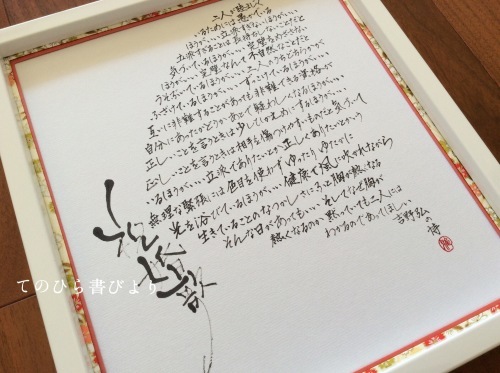 二人が睦まじく
いるためには愚かでいる
ほうがいい 立派すぎないほうがいい
立派すぎることは長持ちしないことだと
気づいているほうがいい 完璧をめざさない
ほうがいい 完璧なんて不自然なことだと
うそぶいているほうがいい 二人のうちどちらかが
ふざけているほうがいい ずっこけているほうがいい
互いに非難することがあっても非難できる資格が
自分にあったかどうかあとで疑わしくなるほうがいい
正しいことを言うときは少しひかえめにするほうがいい
正しいことを言うときは相手を傷つけやすいものだと気づいて
いるほうがいい 立派でありたいとか正しくありたいとかいう
無理な緊張には色目を使わず ゆったりゆたかに
光を浴びているほうがいい 健康で風に吹かれながら
生きていることのなつかしさにふと胸が熱くなる
そんな日があってもいい そしてなぜ胸が
熱くなるのか 黙っていても二人には
わかるのであってほしい
吉野弘の詩
祝婚歌
てのひら書びより